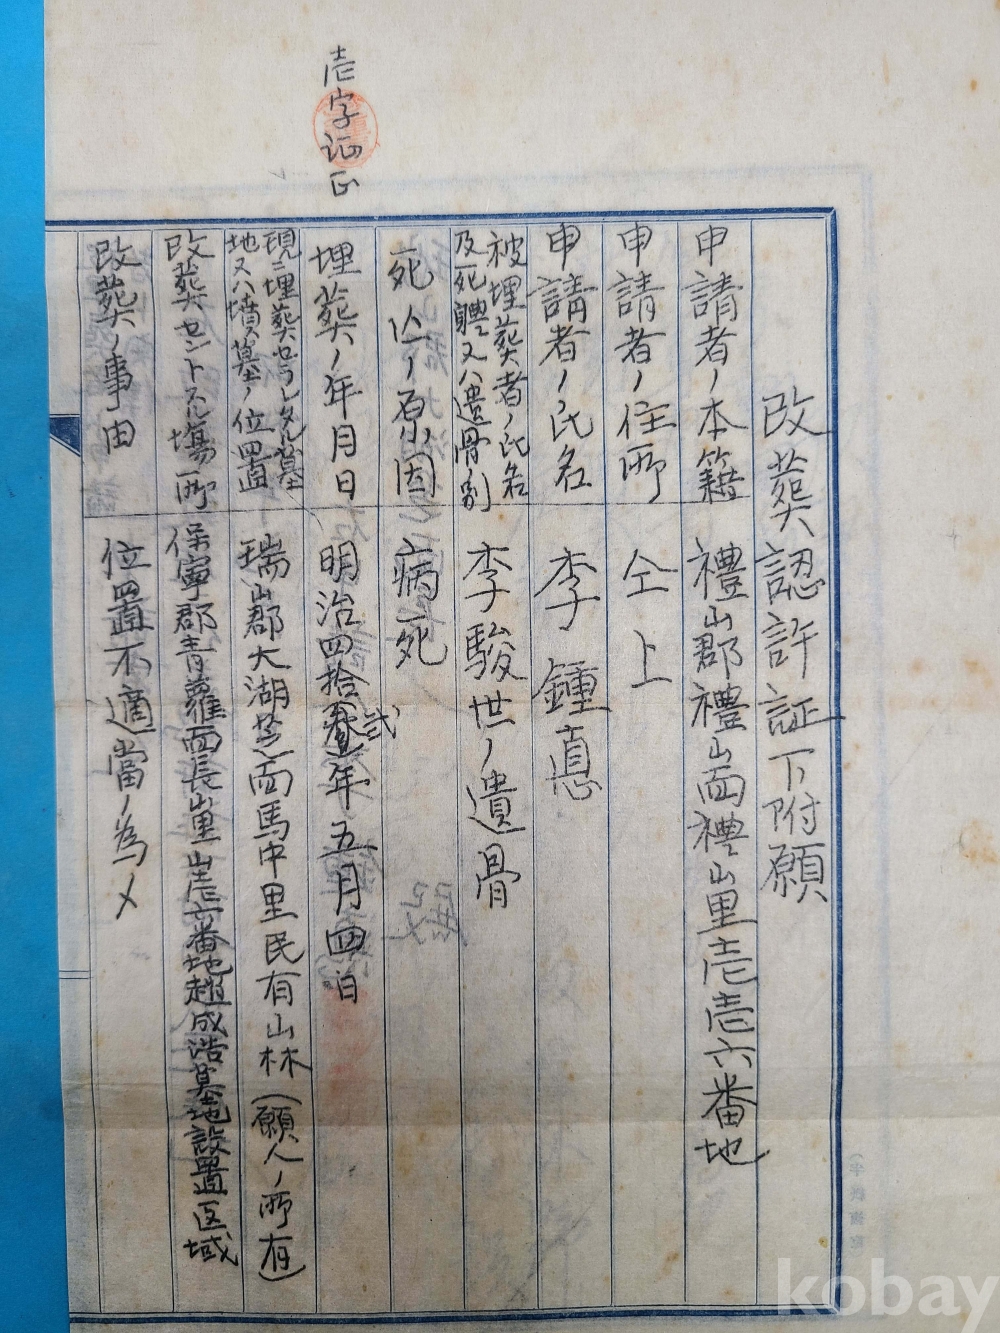 壱字訂正
改葬認許証下附願
申請者ノ本籍 禮山郡禮山面禮山里壱壱六番地
申請者ノ住所 仝上
申請者ノ氏名 李鍾悳
被埋葬者ノ氏名
及死軆又ハ遺骨ノ別 李駿世ノ遺骨
死亡ノ原因 病死
埋葬ノ年月日 明治四拾弐年五月四日
現ニ埋葬セラレタル墓
地又ハ墳墓ノ位置 瑞山郡大湖芝面馬中里民有山林(願人ノ所有)
改葬セントスル場所 保寧郡青蘿面長山里山壱六番地趙成浩墓地設置区域
改葬ノ事由 位置不適當ノ為メ
kobay